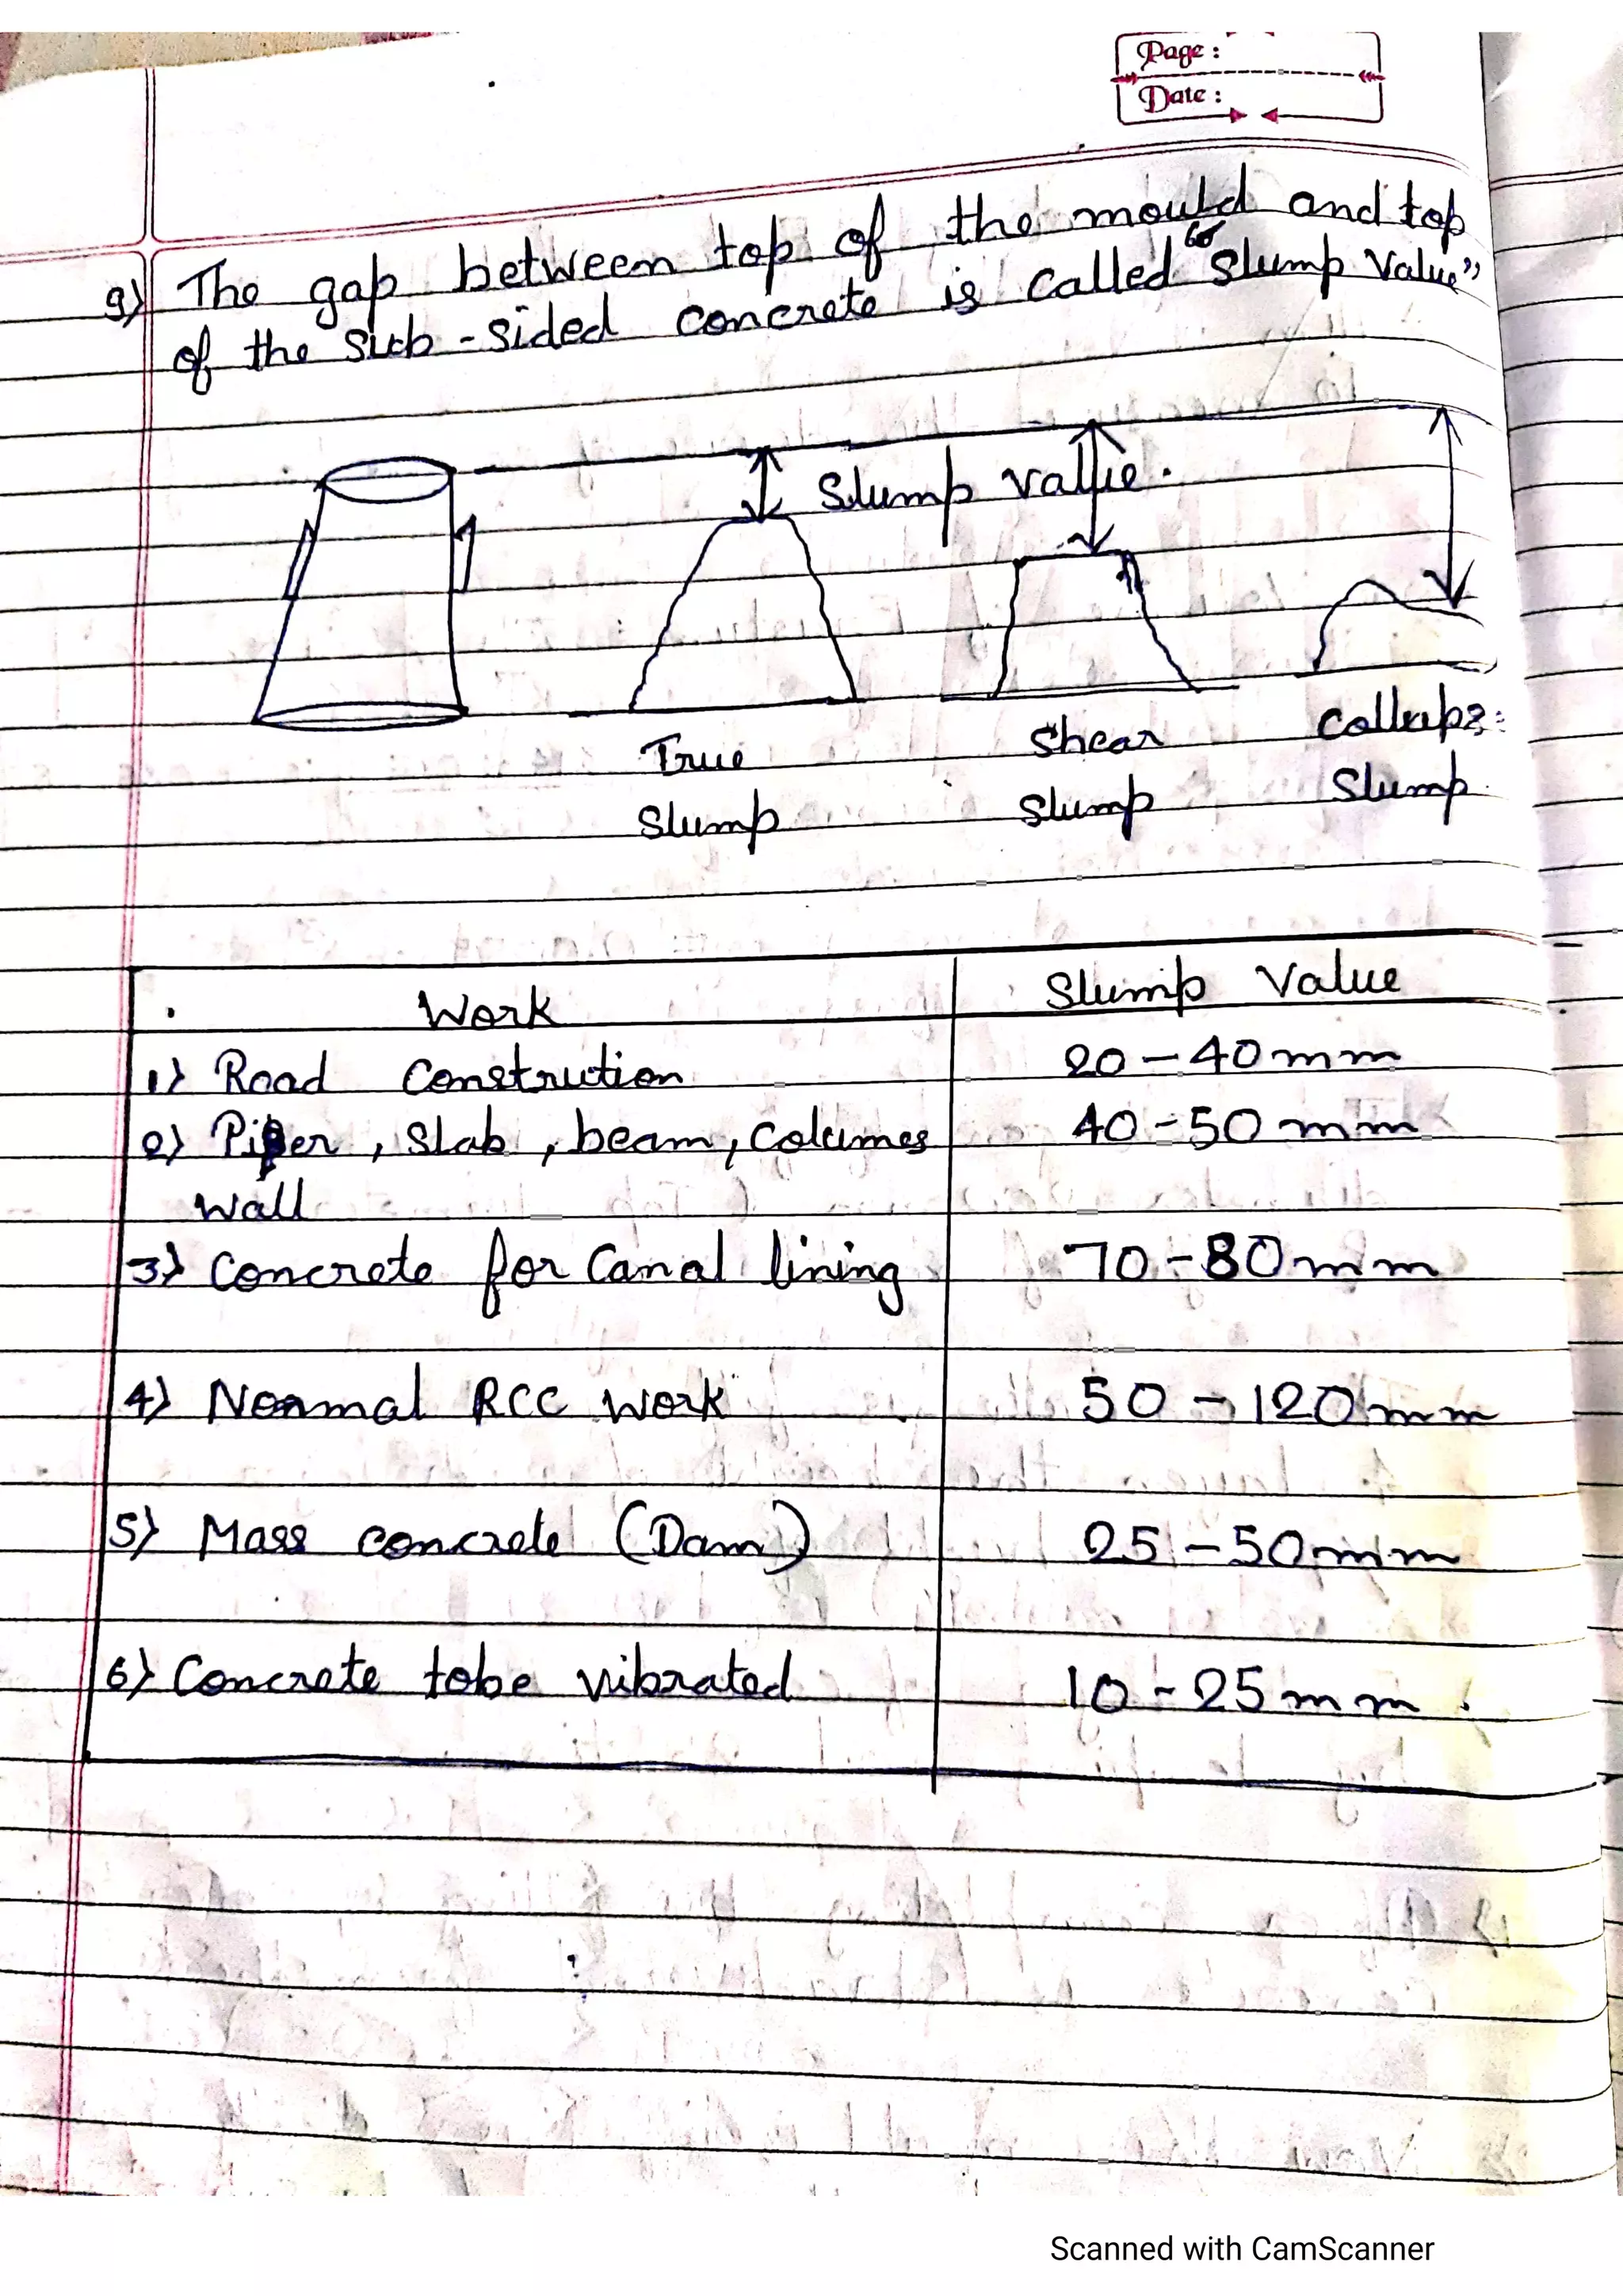 Page :
Date :
9) The gap between top of the mould and top
of the sub-sided concrete is called "Slump Value"
Slump value.
True
Slump
Shear
Slump
Collapse
Slump
Work
Slump Value
1) Road Constrution
20 - 40 mm
2) Pier, Slab, beam, Columes
40 - 50 mm
wall
3) Concrete for Canal lining
70 - 80 mm
4) Normal RCC work
50 - 120 mm
5) Mass concrete (Dam)
25 - 50 mm
6) Concrete tobe vibrated
10 - 25 mm.
Scanned with CamScanner